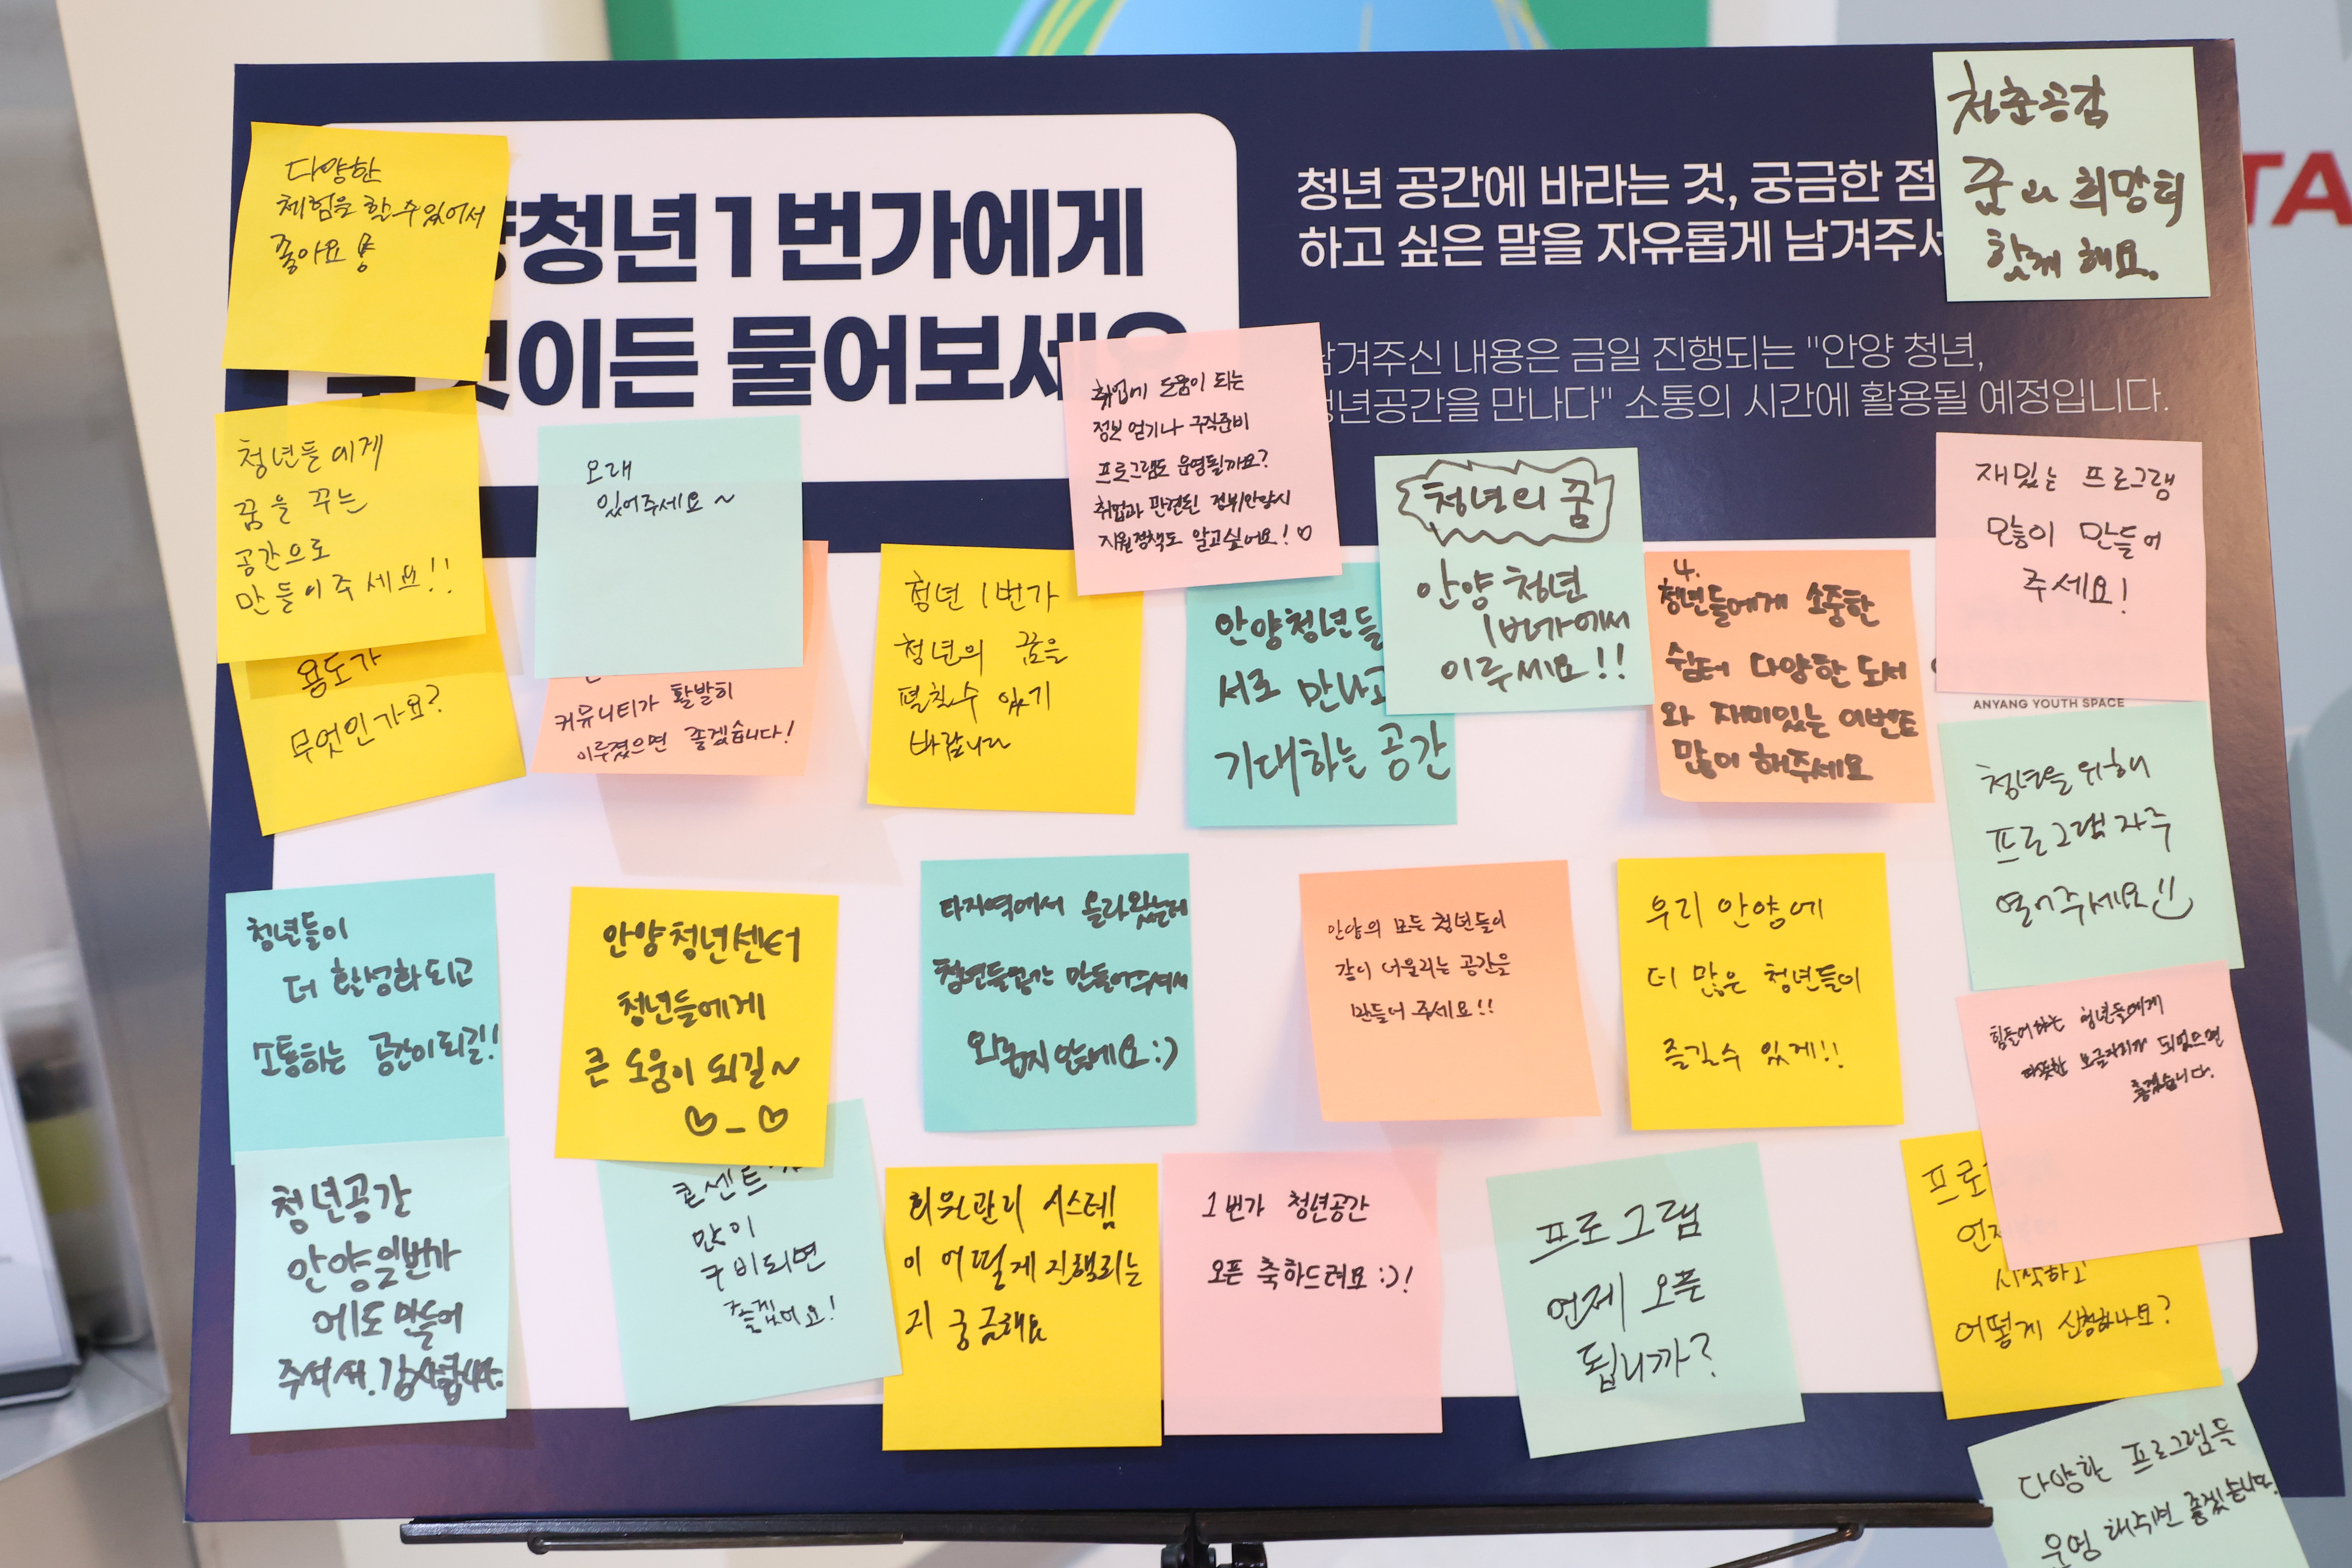 청년1번가에게
이든 물어보세요
청년 공간에 바라는 것, 궁금한 점
하고 싶은 말을 자유롭게 남겨주세
남겨주신 내용은 금일 진행되는 "안양 청년,
청년공간을 만나다" 소통의 시간에 활용될 예정입니다.
청춘공감
꿈과 희망터
함께 해요.
다양한
체험을 할 수 있어서
좋아요
청년들에게
꿈을 꾸는
공간으로
만들어주세요!!
용도가
무엇인가요?
오래
있어주세요~
커뮤니티가 활발히
이루졌으면 좋겠습니다!
청년 1번가
청년의 꿈을
펼칠수 있기
바랍니다
취업에 도움이 되는
정보 얻기나 구직준비
프로그램도 운영될까요?
취업과 관련된 정부/안양시
지원정책도 알고싶어요!♡
안양청년들
서로 만나고
기대하는 공간
청년의 꿈
안양 청년
1번가에서
이루세요!!
4.
청년들에게 소중한
쉼터 다양한 도서
와 재미있는 이벤트
많이 해주세요
재밌는 프로그램
많이 만들어
주세요!
ANYANG YOUTH SPACE
청년을 위해
프로그램 자주
열어주세요
청년들이
더 활성화되고
소통하는 공간이되길!
안양청년센터
청년들에게
큰 도움이 되길~
♡_♡
타지역에서 올라왔는데
청년들공간 만들어주셔서
외롭지 않네요:)
안양의 모든 청년들이
같이 어울리는 공간을
만들어 주세요!!
우리 안양에
더 많은 청년들이
즐길수 있게!!
힘들어하는 청년들에게
따뜻한 보금자리가 되었으면
좋겠습니다.
청년공간
안양일번가
에도 만들어
주셔서. 감사합니다.
콘센트
많이
구비되면
좋겠어요!
회원관리 시스템
이 어떻게 진행되는
지 궁금해요
1번가 청년공간
오픈 축하드려요:)!
프로그램
언제 오픈
됩니까?
프로
언제
시작하고
어떻게 신청하나요?
다양한 프로그램들
운영 해주시면 좋겠습니다.
TA